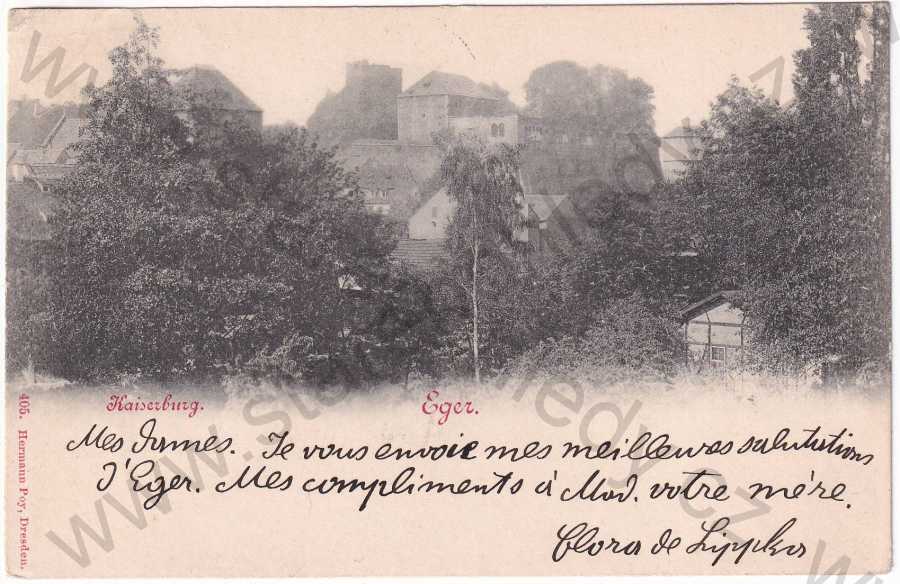 Kaiserburg.
Eger.
405. Hermann Poy, Dresden.
Mes Dames. Je vous envoie mes meilleures salutations
d'Eger. Mes compliments à Mad. votre mère.
Clara de Lippka
www.stare-pohledy.cz